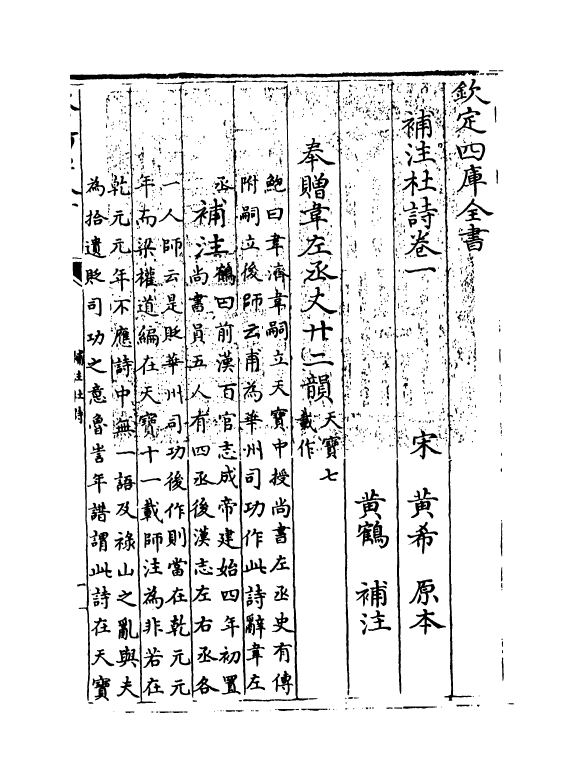 欽定四庫全書
補注杜詩卷一
宋 黃希 原本
黃鶴 補注
奉贈韋左丞丈廿二韻天寶七載作
鮑曰韋濟韋嗣立天寶中授尚書左丞史有傳
附嗣立後師云甫為華州司功作此詩辭韋左
丞補注鶴曰前漢百官志成帝建始四年初置
尚書員五人有四丞後漢志左右丞各
一人師云是貶華州司功後作則當在乾元元
年而梁權道編在天寶十一載師注為非若在
乾元元年不應詩中無一語及祿山之亂與夫
為拾遺貶司功之意魯訔年譜謂此詩在天寶
補注杜詩
一